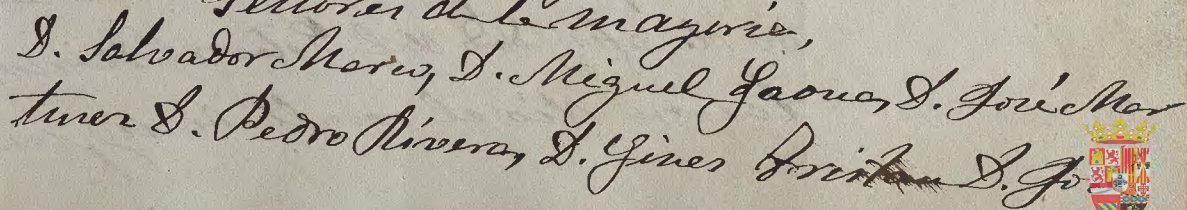 Señores de la mayoria,
D. Salvador Mario, D. Miguel Gaona, D. José Mar
tinez D. Pedro Rivera, D. Gines Tristan D. Jo